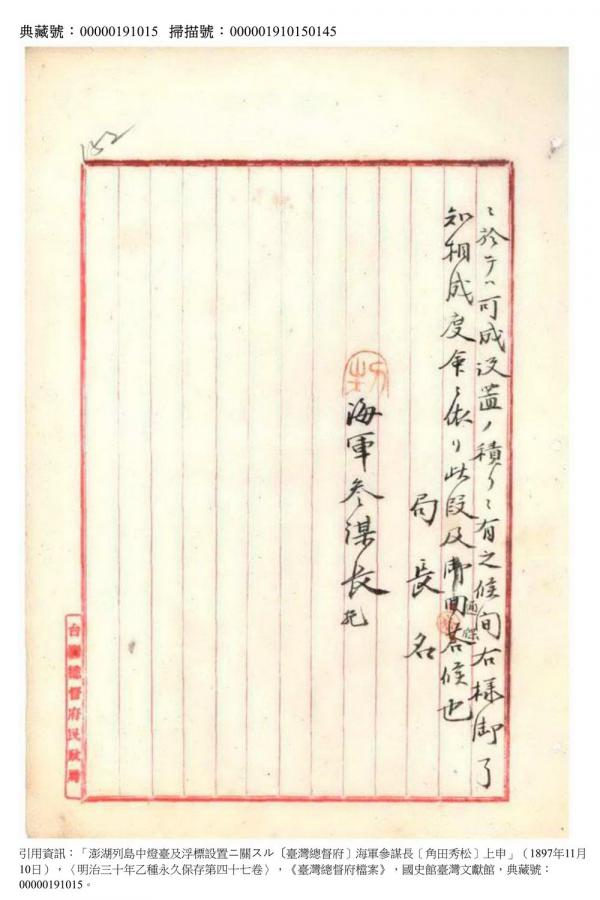 典藏號：00000191015 掃描號：000001910150145
152
ニ於テハ可成設置ノ積リニ有之候間右様御了
知相成度命ニ依リ此段及
通牒
候也
局長名
海軍参謀長宛
台灣總督府民政局
引用資訊：「澎湖列島中燈臺及浮標設置ニ關スル〔臺灣總督府〕海軍參謀長〔角田秀松〕上申」（1897年11月
10日），〈明治三十年乙種永久保存第四十七卷〉，《臺灣總督府檔案》，國史館臺灣文獻館，典藏號：
00000191015。